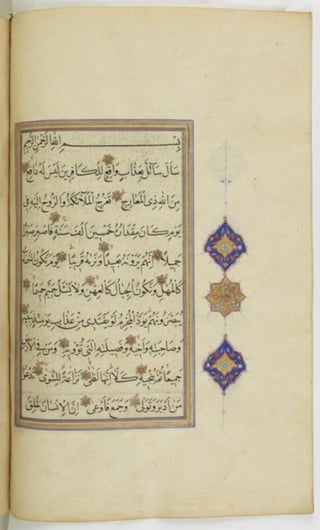 بسم الله الرحمن الرحيم
سأل سائل بعذاب واقع للكافرين ليس له دافع
من الله ذي المعارج تعرج الملائكة والروح إليه في
يوم كان مقداره خمسين ألف سنة فاصبر صبرا
جميلا إنهم يرونه بعيدا ونريه قريبا يوم تكون السماء
كالمهل وتكون الجبال كالعهن ولا يسئل حميم حميما
يبصرونهم يود المجرم لو يفتدي من عذاب يومئذ ببنيه
وصاحبته وأخيه وفصيلته التي تؤويه ومن في الأرض
جميعا ثم ينجيه كلا إنها لظى نزاعة للشوى تدعوا
من أدبر وتولى وجمع فأوعى إن الإنسان خلق